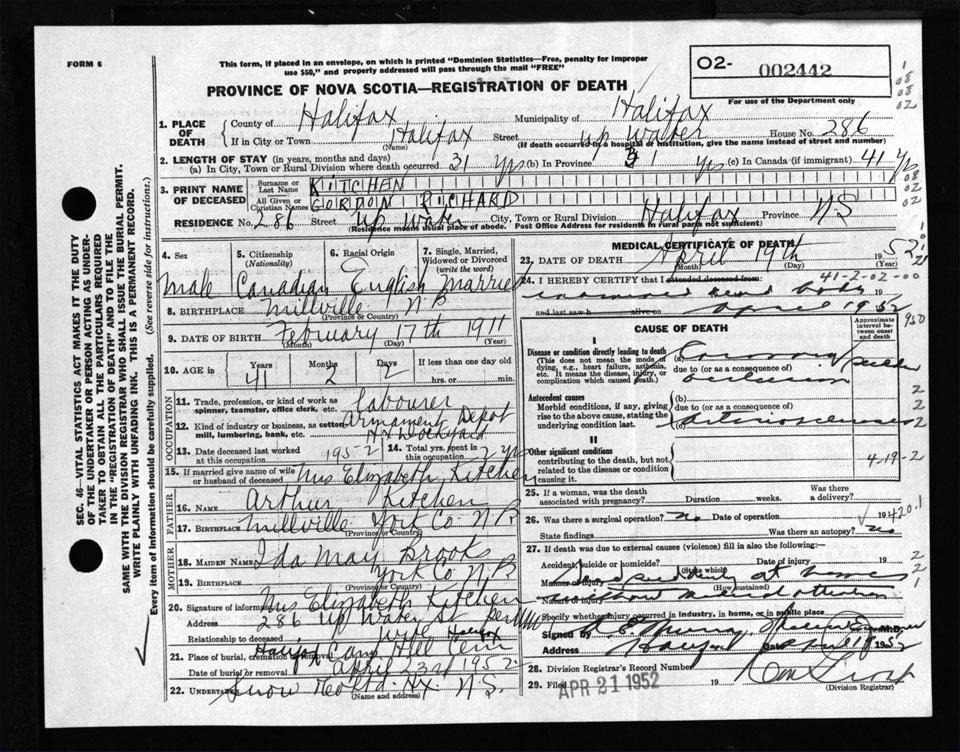 FORM 6
This form, if placed in an envelope, on which is printed "Dominion Statistics—Free, penalty for improper
use $50," and properly addressed will pass through the mail "FREE"
O2- 002442
For use of the Department only
PROVINCE OF NOVA SCOTIA—REGISTRATION OF DEATH
1. PLACE OF DEATH
County of Halifax Municipality of Halifax
If in City or Town Halifax Street up Water House No. 286
(Name) (If death occurred in a hospital or institution, give the name instead of street and number)
2. LENGTH OF STAY (in years, months and days)
(a) In City, Town or Rural Division where death occurred 31 yrs (b) In Province 31 yrs (c) In Canada (if immigrant) 41 yrs
3. PRINT NAME OF DECEASED
Surname or Last Name KITCHEN
All Given or Christian Names GORDON RICHARD
RESIDENCE No. 286 Street up Water City, Town or Rural Division Halifax Province NS
(Residence means usual place of abode. Post Office Address for residents in rural parts not sufficient)
4. Sex 5. Citizenship (Nationality) 6. Racial Origin 7. Single, Married, Widowed or Divorced (write the word)
Male Canadian English Married
8. BIRTHPLACE Millville N.B
(Province or Country)
9. DATE OF BIRTH February 17th 1911
(Month) (Day) (Year)
10. AGE in Years Months Days If less than one day old
41 2 2 hrs. or min.
OCCUPATION
11. Trade, profession, or kind of work as spinner, teamster, office clerk, etc. labourer
12. Kind of industry or business, as cotton mill, lumbering, bank, etc. Armament Depot
Hx Dockyard
13. Date deceased last worked at this occupation 1952 14. Total yrs. spent in this occupation 2 yrs
15. If married give name of wife or husband of deceased Mrs Elizabeth Kitchen
FATHER
16. NAME Arthur Kitchen
17. BIRTHPLACE Millville York Co N.B
(Province or Country)
MOTHER
18. MAIDEN NAME Ida May Brooks
19. BIRTHPLACE York Co N.B
(Province or Country)
20. Signature of informant Mrs Elizabeth Kitchen
Address 286 up Water St
Relationship to deceased wife Halifax
21. Place of burial, cremation or removal Halifax Camp Hill Cem
Date of burial or removal April 23rd 1952
22. UNDERTAKER Snow Hx. N.S.
(Name and address)
MEDICAL CERTIFICATE OF DEATH
23. DATE OF DEATH April 19th 1952
(Month) (Day) (Year)
41-2-02-00
24. I HEREBY CERTIFY that I attended deceased from:
examined dead body 19
and last saw h alive on April 1952
CAUSE OF DEATH
Approximate interval between onset and death
I
Disease or condition directly leading to death
(This does not mean the mode of dying, e.g., heart failure, asthenia, etc. It means the disease, injury, or complication which caused death.)
(a) Coronary
due to (or as a consequence of)
occlusion
Antecedent causes
Morbid conditions, if any, giving rise to the above cause, stating the underlying condition last.
(b)
due to (or as a consequence of)
(c)
II
Other significant conditions
contributing to the death, but not related to the disease or condition causing it.
4-19-2
25. If a woman, was the death associated with pregnancy? Duration weeks. Was there a delivery?
26. Was there a surgical operation? no Date of operation 19
State findings Was there an autopsy? no
27. If death was due to external causes (violence) fill in also the following:—
Accident, suicide or homicide? Date of injury 19
(State which)
Manner of injury suddenly at home
(How sustained)
Nature of injury without medical attention
Specify whether injury occurred in industry, in home, or in public place
Signed by M.D.
Address Halifax Date 1952
28. Division Registrar's Record Number
29. Filed APR 21 1952 19
(Division Registrar)
SEC. 46—VITAL STATISTICS ACT MAKES IT THE DUTY
OF THE UNDERTAKER OR PERSON ACTING AS UNDER-
TAKER TO OBTAIN ALL THE PARTICULARS REQUIRED
IN THE "REGISTRATION OF DEATH" AND TO FILE THE
SAME WITH THE DIVISION REGISTRAR WHO SHALL ISSUE THE BURIAL PERMIT.
WRITE PLAINLY WITH UNFADING INK. THIS IS A PERMANENT RECORD.
Every item of information should be carefully supplied. (See reverse side for instructions.)